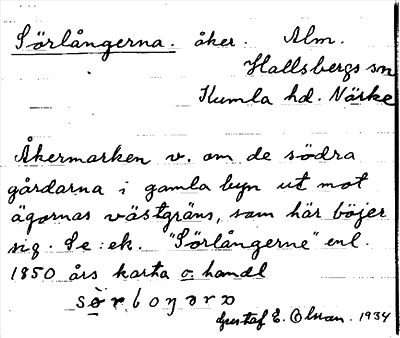 Sörlångerna. åker. Alm.
Hallsbergs sn
Kumla hd. Närke
Åkermarken v. om de södra
gårdarna i gamla byn ut mot
ägornas västgräns, som här böjer
sig. Se: ek. "Sörlångerne" enl.
1850 års karta o. handl
Gustaf E. Olsson. 1934